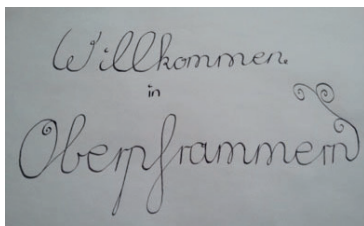 Willkommen
in
Oberpframmern